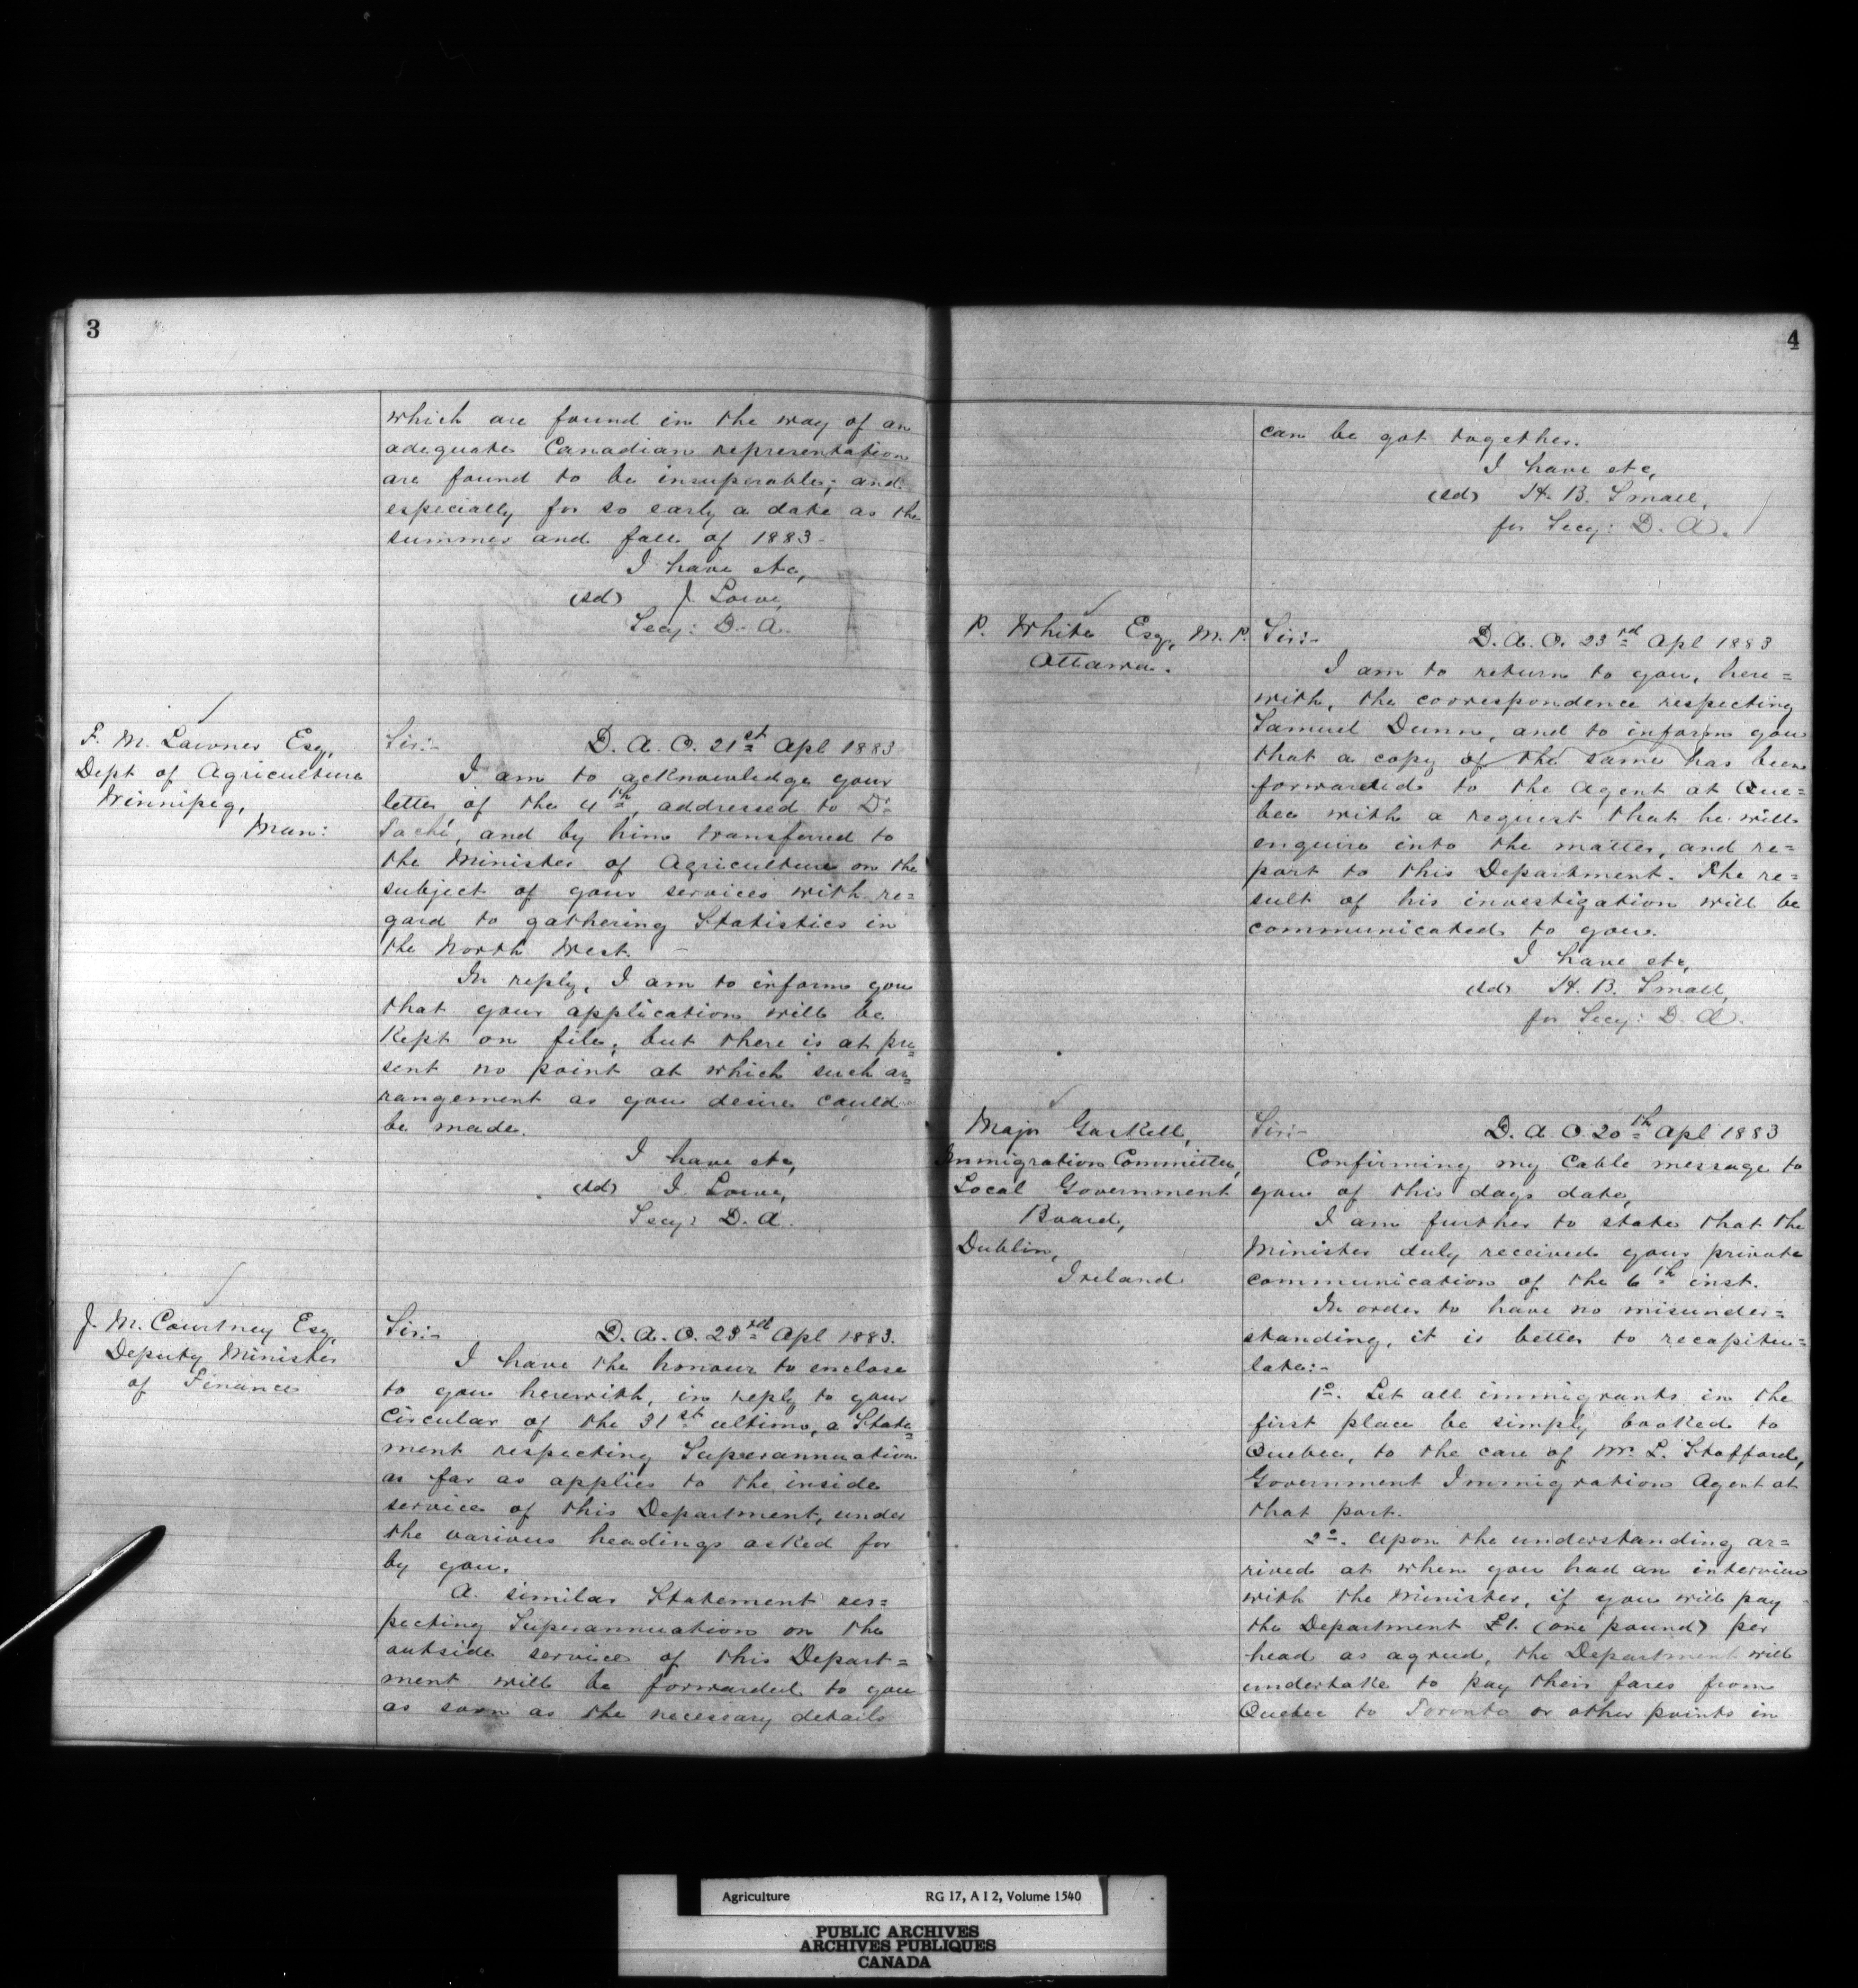 3
which are found in the way of an
adequate Canadian representation
are found to be insuperable; and
especially for so early a date as the
summer and fall of 1883-
I have etc,
(sd) J. Lowe,
Secy: D. A.
F. M. Lawner Esq,
Dept of Agriculture
Winnipeg,
Man:
Sir:- D. A. O. 21st Apl 1883
I am to acknowledge your
letter of the 4th, addressed to Dr
Taché, and by him transferred to
the Minister of Agriculture on the
subject of your services with re=
gard to gathering Statistics in
the North West. -
In reply, I am to inform you
that your application will be
Kept on file; but there is at pre=
sent no point at which such ar=
rangement as you desire could
be made.
I have etc,
(sd) J. Lowe,
Secy: D. A.
J. M. Courtney Esq,
Deputy Minister
of Finance
Sir:- D. A. O. 23rd Apl 1883.
I have the honour to enclose
to you herewith, in reply to your
Circular of the 31st ultimo, a State=
ment respecting Superannuation
as far as applies to the inside
service of this Department, under
the various headings asked for
by you.
A similar Statement res=
pecting Superannuation on the
outside service of this Depart=
ment will be forwarded to you
as soon as the necessary details
4
can be got together.
I have etc,
(sd) H. B. Small,
for Secy: D. A.
P. White Esq, M. P.
Ottawa.
Sir:- D. A. O. 23rd Apl 1883
I am to return to you, here=
with, the correspondence respecting
Samuel Dunn, and to inform you
that a copy of the same has been
forwarded to the Agent at Que=
bec with a request that he will
enquire into the matter, and re=
port to this Department. The re=
sult of his investigation will be
communicated to you.
I have etc,
(sd) H. B. Small,
for Secy: D. A.
Major Gaskell,
Immigration Committee,
Local Government
Board,
Dublin,
Ireland
Sir:- D. A. O. 20th Apl 1883
Confirming my Cable message to
you of this days date,
I am further to state that the
Minister duly received your private
communication of the 6th inst.
In order to have no misunder=
standing, it is better to recapitu=
late:-
1o. Let all immigrants in the
first place be simply booked to
Quebec, to the care of Mr. L. Stafford,
Government Immigration Agent at
that port.
2o. Upon the understanding ar=
rived at when you had an interview
with the Minister, if you will pay
the Department £1. (one pound) per
head as agreed, the Department will
undertake to pay their fares from
Quebec to Toronto or other points in
Agriculture RG 17, A I 2, Volume 1540
PUBLIC ARCHIVES
ARCHIVES PUBLIQUES
CANADA